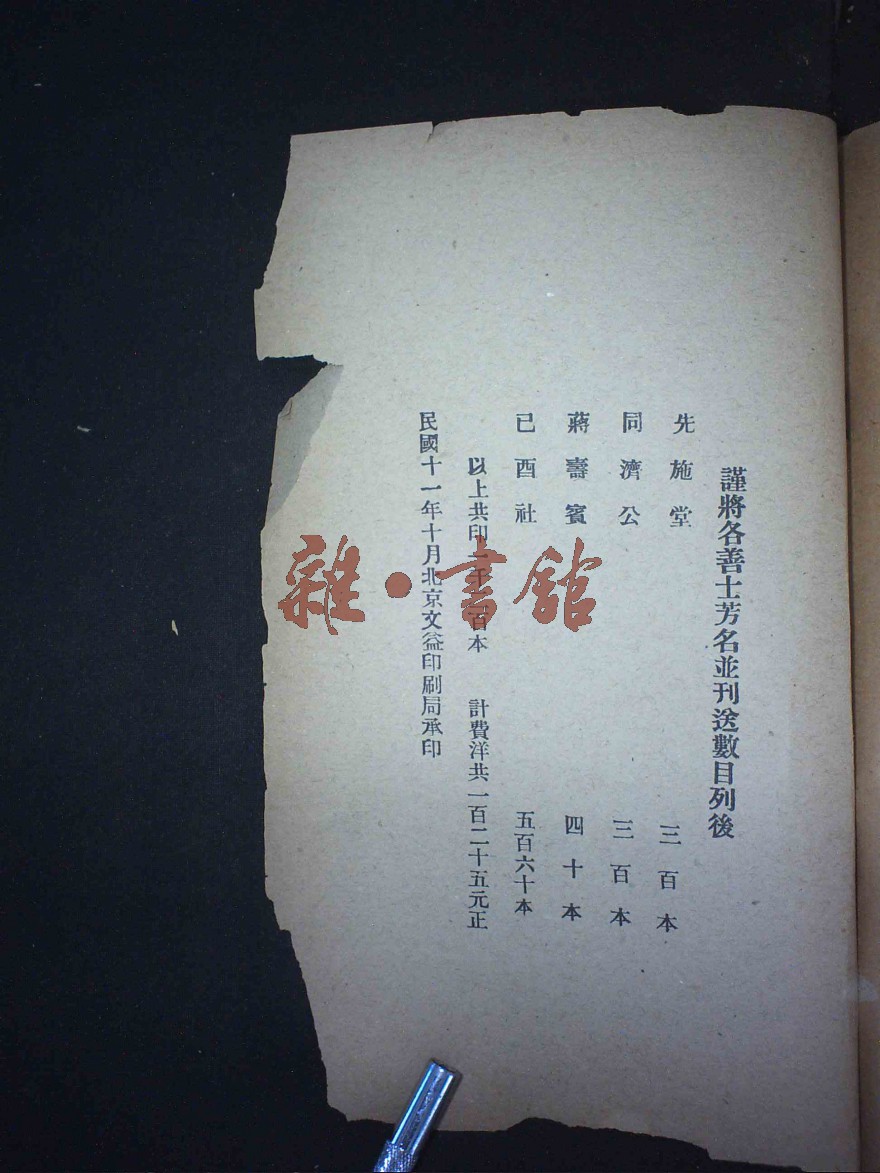 謹將各善士芳名並刊送數目列後
先施堂 三百本
同濟公 三百本
蔣壽賓 四十本
已酉社 五百六十本
以上共印一千二百本 計費洋共一百二十五元正
民國十一年十月北京文益印刷局承印
雜·書館